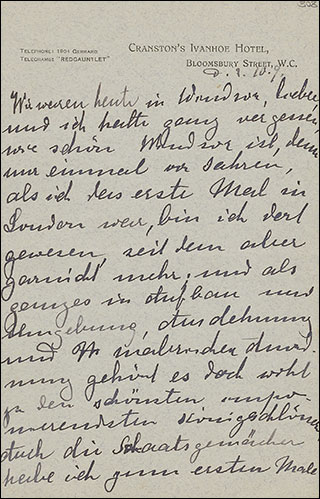 TELEPHONE: 1904 GERRARD
TELEGRAMS "REDGAUNTLET"
CRANSTON'S IVANHOE HOTEL,
BLOOMSBURY STREET, W.C.
Wir waren heute in Windsor, Lieber,
und ich hatte ganz vergessen,
wie schön Windsor ist, denn
nur einmal vor Jahren,
als ich das erste Mal in
London war, bin ich dort
gewesen, seit dem aber
garnicht mehr. und als
ganzes in Aufbau und
Umgebung, Ausdehnung
und malerischer Anord-
nung gehört es doch wohl
zu den schönsten impo-
nierendsten Königsschlössern
durch die Staatsgemächer
habe ich zum ersten Male